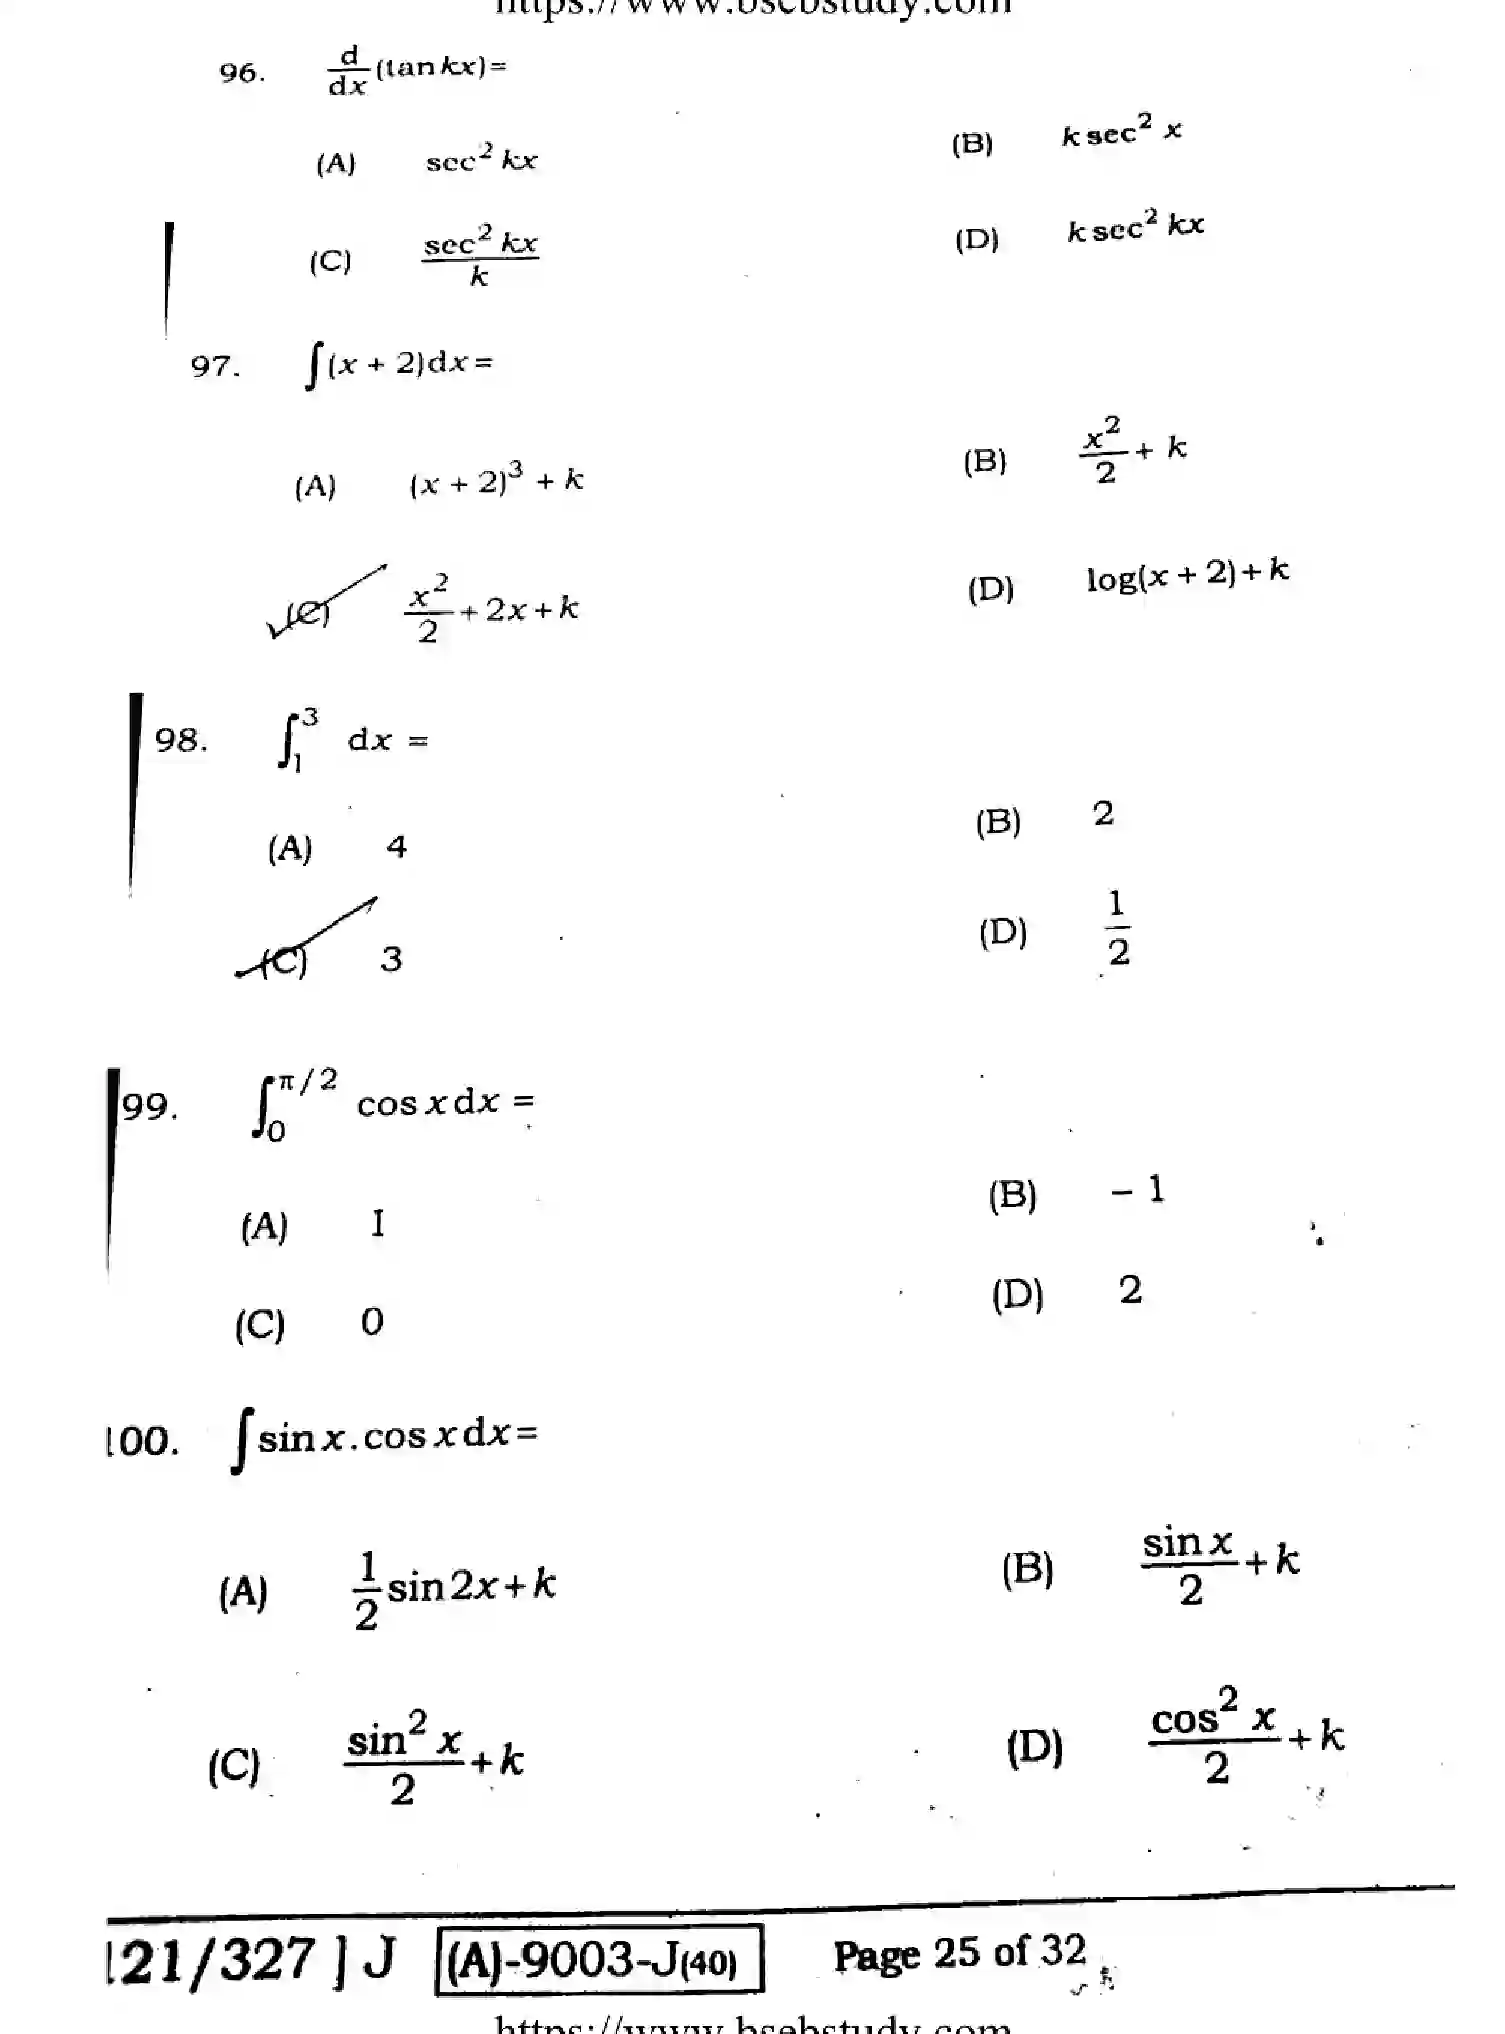 https://www.bsebstudy.com
96. d/dx (tan kx) =
(A) sec² kx (B) k sec² x
(C) sec² kx / k (D) k sec² kx
97. ∫(x + 2)dx =
(A) (x + 2)³ + k (B) x²/2 + k
(C) x²/2 + 2x + k (D) log(x + 2) + k
98. ∫₁³ dx =
(A) 4 (B) 2
(C) 3 (D) 1/2
99. ∫₀^π/2 cos x dx =
(A) 1 (B) – 1
(C) 0 (D) 2
100. ∫ sin x . cos x dx =
(A) 1/2 sin 2x + k (B) sin x / 2 + k
(C) sin² x / 2 + k (D) cos² x / 2 + k
121/327 ] J (A)-9003-J(40) Page 25 of 32
https://www.bsebstudy.com